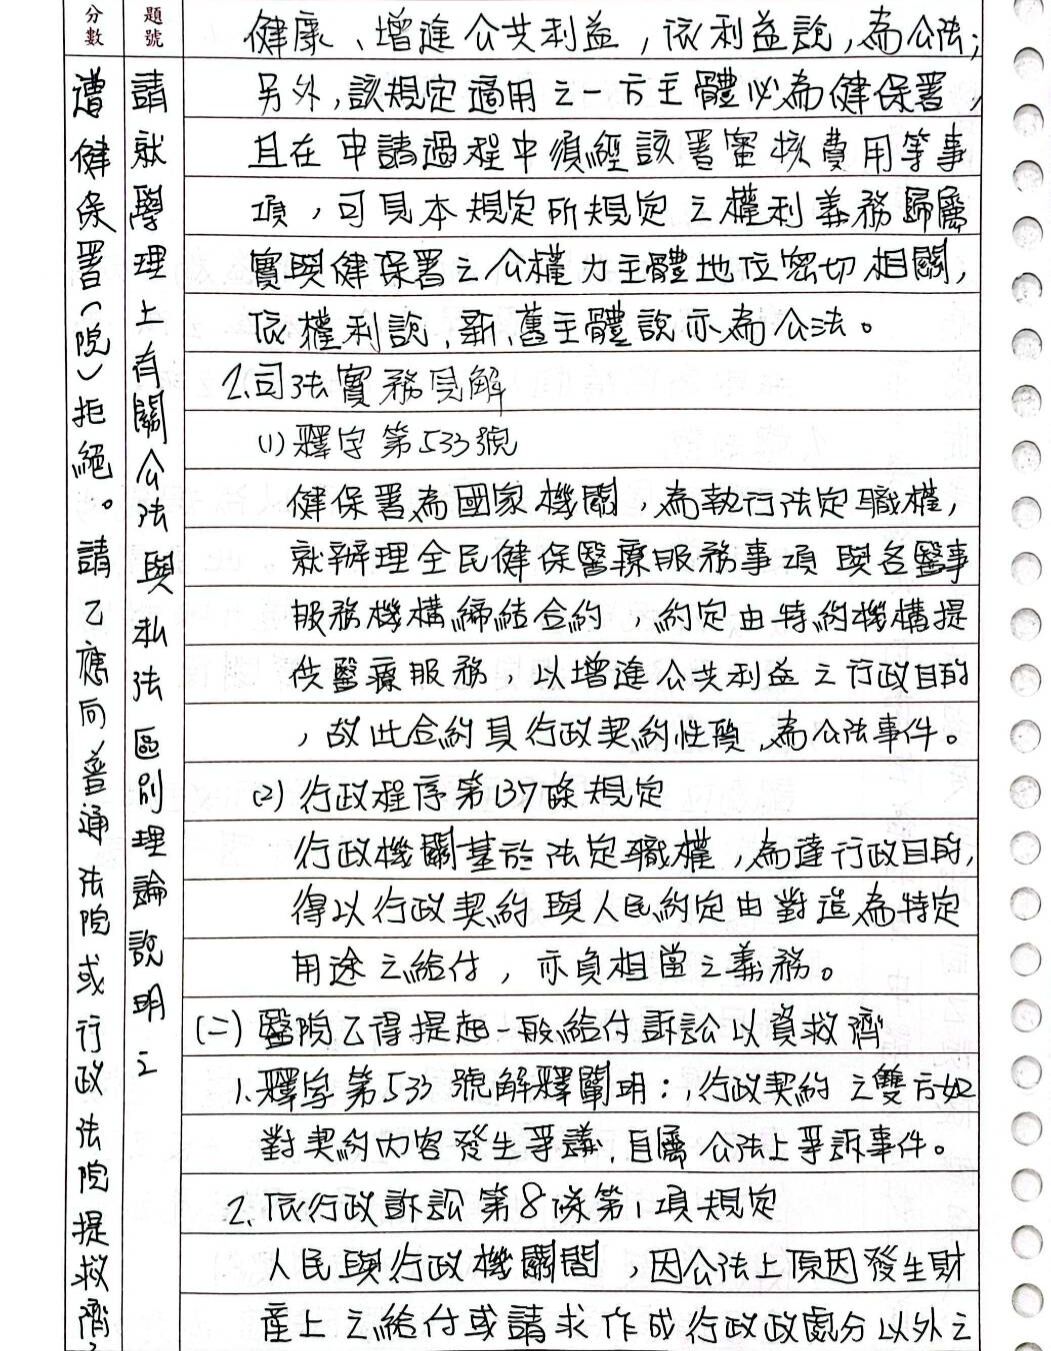 題號
分數
遭健保署(院)拒絕。請乙應向普通法院或行政法院提救濟?
請就學理上有關公法與私法區別理論說明之
健康、增進公共利益,依利益說,為公法;
另外,該規定適用之一方主體必為健保署,
且在申請過程中須經該署審核費用等事
項,可見本規定所規定之權利義務歸屬
實與健保署之公權力主體地位密切相關,
依權利說、新、舊主體說亦為公法。
2.司法實務見解
(1)釋字第533號
健保署為國家機關,為執行法定職權,
就辦理全民健保醫療服務事項與各醫事
服務機構締結合約,約定由特約機構提
供醫療服務,以增進公共利益之行政目的
,故此合約具行政契約性質,為公法事件。
(2)行政程序第137條規定
行政機關基於法定職權,為達行政目的,
得以行政契約與人民約定由對造為特定
用途之給付,亦負相當之義務。
(二)醫院乙得提起一般給付訴訟以資救濟
1.釋字第533號解釋闡明:,行政契約之雙方如
對契約內容發生爭議,自屬公法上爭訴事件。
2.依行政訴訟第8條第1項規定
人民與行政機關間,因公法上原因發生財
產上之給付或請求作成行政政處分以外之